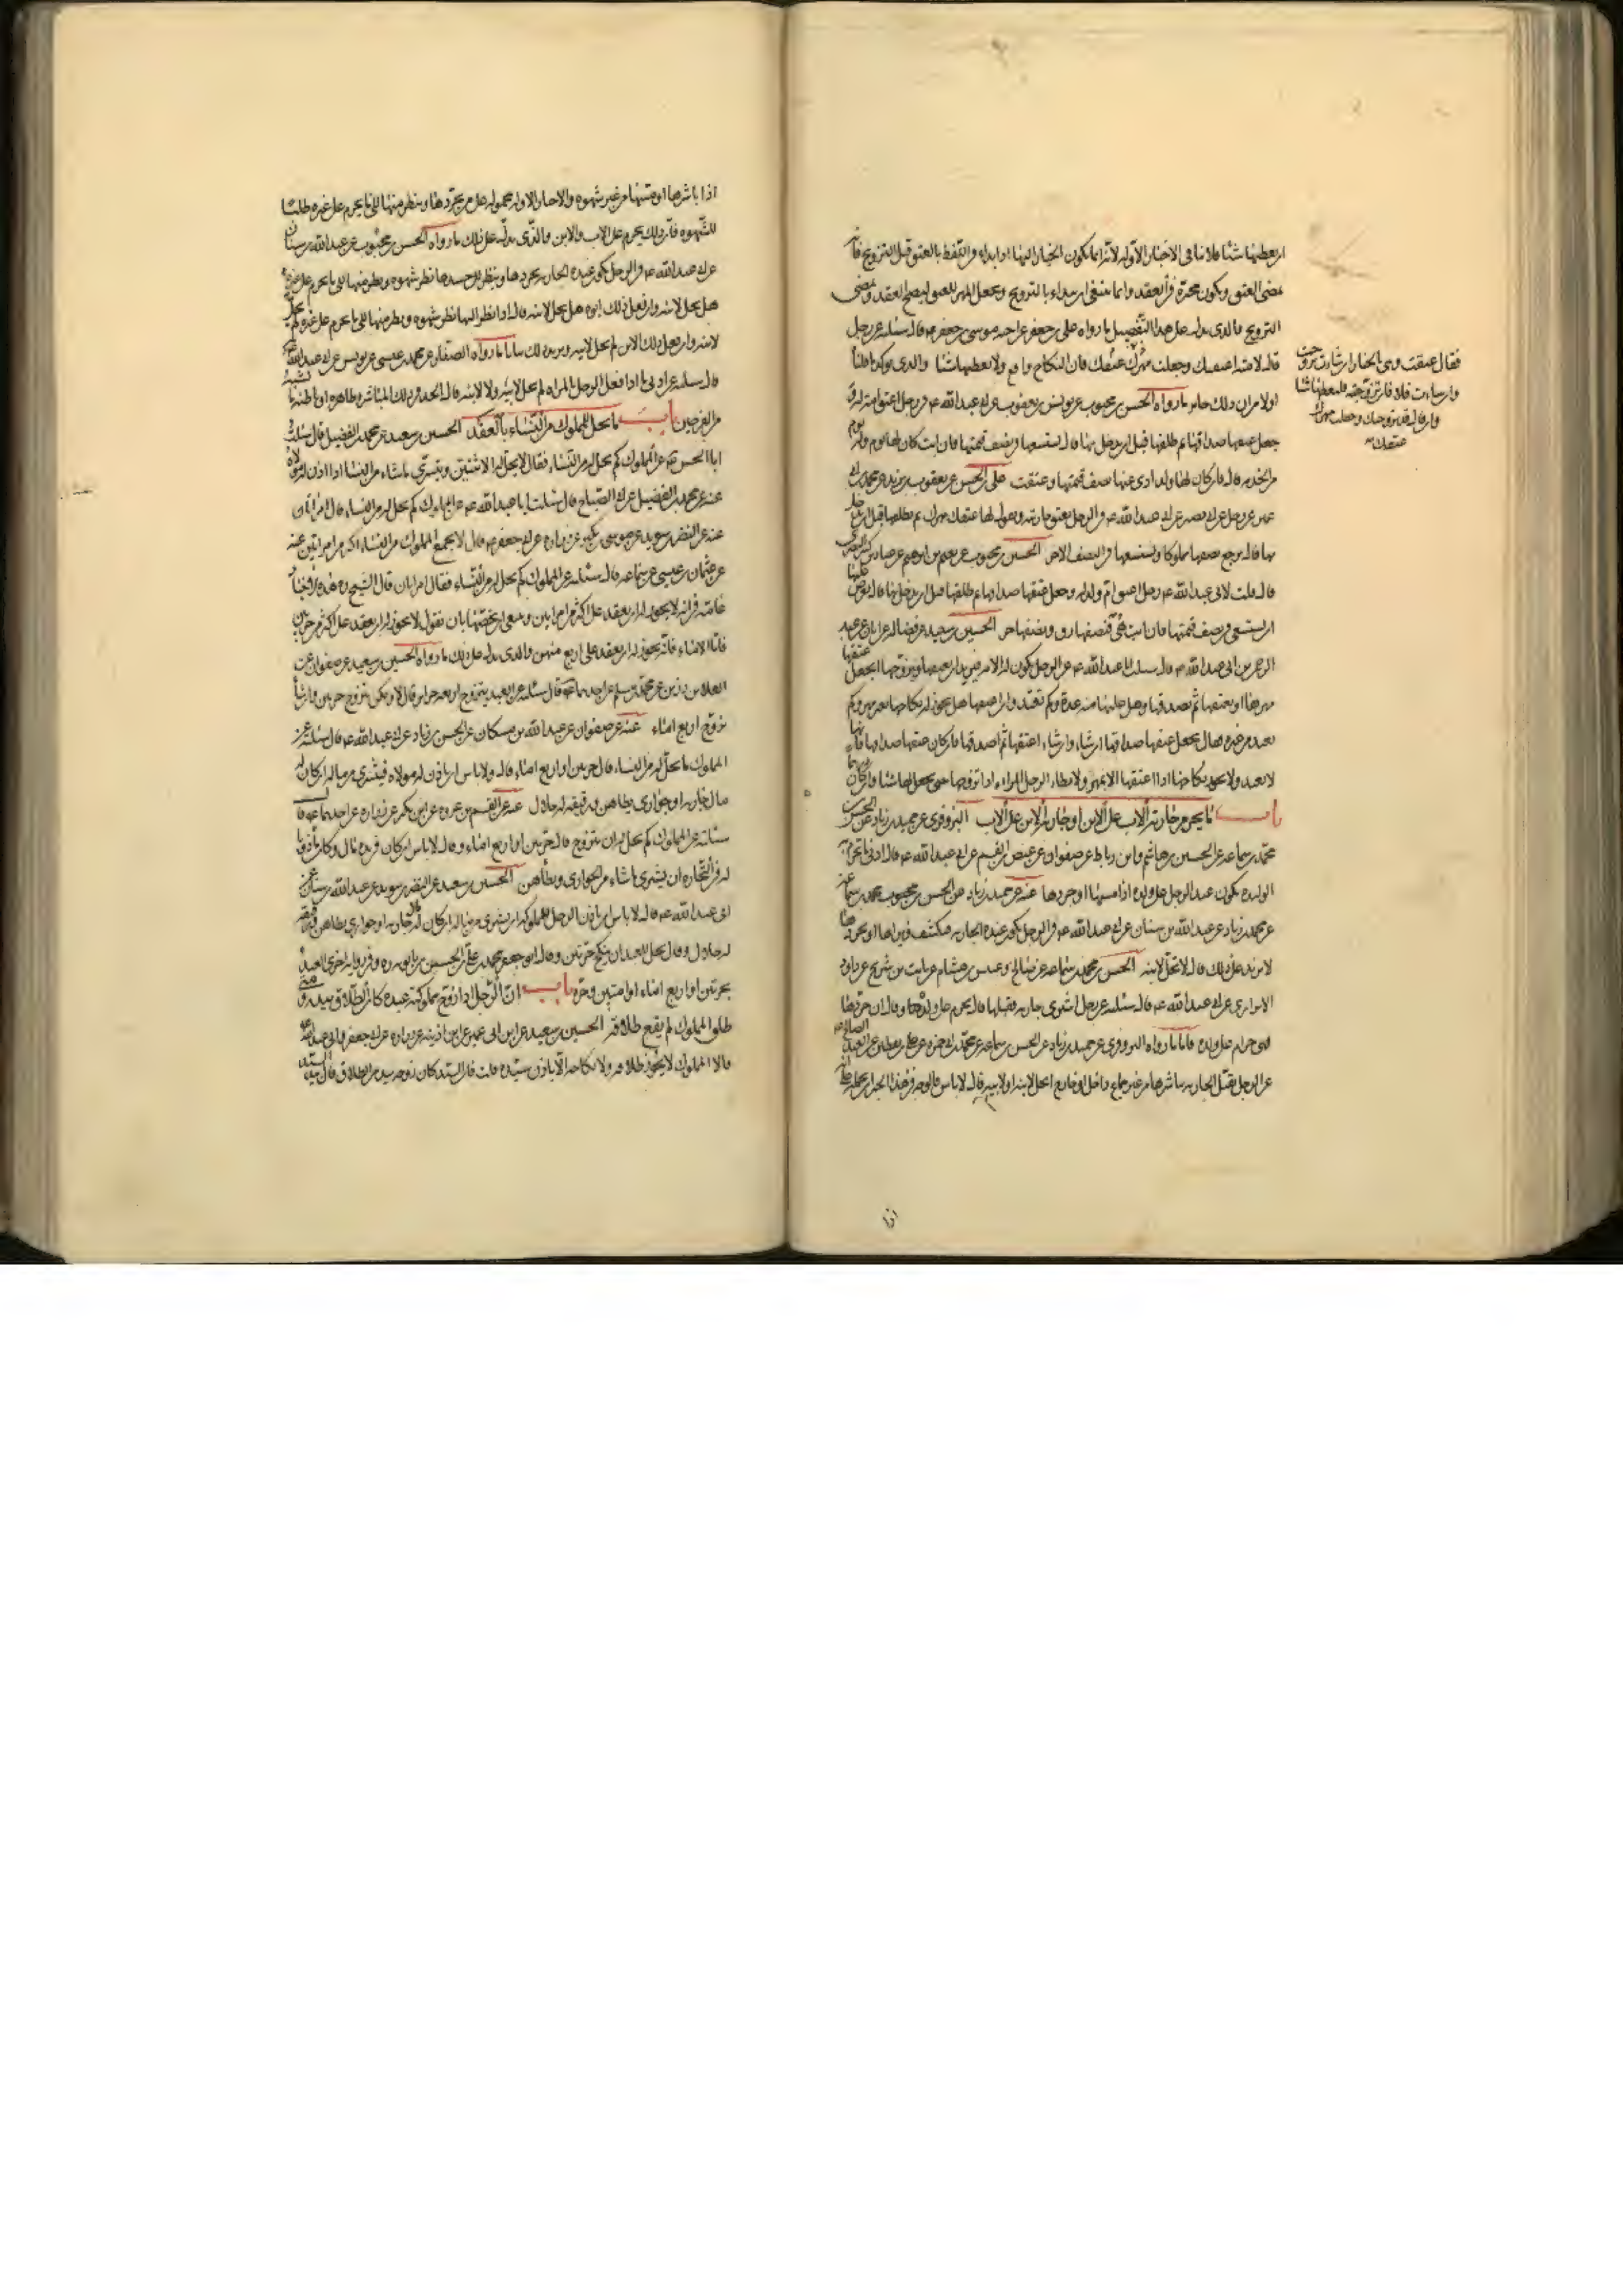 ان يعطيها شيئا فلا ينافى الاخبار الأوله لأنه انما يكون الخيار اليها اذا بدء فى اللفظ بالعتق قبل التزويج فانه
يمضى العتق ويكون مخيرة فى العقد وانما ينبغى ان يبداء بالتزويج ويجعل المهر العتق ليصح العقد ويمضى
التزويج والذى يدل على هذا التفصيل ما رواه على بن جعفر عن اخيه موسى بن جعفر ع قال سئلته عن رجل
قال لامته اعتقتك وجعلت مهرك عتقك
فقال عتقت وهى بالخيار ان شاءت تزوجت
وان شاءت فلا فان تزوجته فليعطها شيئا
وان قال قد تزوجتك وجعلت مهرك
عتقك
فان النكاح واقع ولا يعطيها شيئا والذى
اولا من ان ذلك جايز ما رواه الحسن بن محبوب عن يونس بن يعقوب عن ابى عبد الله ع فى رجل اعتق امة له و
جعل عتقها صداقها ثم طلقها قبل ان يدخل بها قال يستسعيها فى نصف قيمتها فان ابت كان لها يوم وله يوم
من الخدمة قال فان كان لها ولد ادى عنها نصف قيمتها وعتقت على بن الحسن عن يعقوب بن يزيد عن محمد بن ابى
عمير عن رجل عن ابى بصير عن ابى عبد الله ع فى الرجل يعتق جاريته ويقول لها عتقك مهرك ثم يطلقها قبل ان يدخل
بها قال يرجع نصفها مملوكا ويستسعيها فى النصف الاخر الحسن بن محبوب عن نعيم بن ابرهيم عن عباد بن كثير البصرى
قال قلت لابى عبد الله ع رجل اعتق ام ولد له وجعل عتقها صداقها ثم طلقها قبل ان يدخل بها قال يعرض عليها
ان تستسعى فى نصف قيمتها فان ابت هى فنصفها رق ونصفها حر الحسين بن سعيد عن فضاله عن ابان عن عبد
الرحمن بن ابى عبد الله ع قال سالت ابا عبد الله ع عن الرجل يكون له الامة يريد ان يعتقها ويتزوجها ايجعل عتقها
مهرها او يعتقها ثم يصدقها وهل عليها منه عدة وكم تعتد وان اعتقها هل يجوز له نكاحها بغير مهر وكم
تعتد من غيره فقال يجعل عتقها صداقها ان شاء وان شاء اعتقها ثم اصدقها فان كان عتقها صداقها فانها
لا تعتد ولا يجوز نكاحها اذا اعتقها الا بمهر ولا يطاء الرجل المراءة اذا تزوجها حتى يجعل لها شيئا وان كان
باب ما يحرم جارية الاب على الابن او جارية الابن على الاب البزوفرى عن حميد بن زياد عن الحسن بن
محمد بن سماعه عن الحسين بن هاشم وابن رباط عن صفوان عن عيص بن القسم عن ابى عبد الله ع قال ادنى ما تحرم به
الوليده تكون عند الرجل على ولده اذا مسها او جردها عنه عن حميد بن زياد عن الحسن بن محبوب محمد بن سماعه
عن محمد بن زياد عن عبد الله بن سنان عن ابى عبد الله ع فى الرجل تكون عنده الجاريه فيكشف فيراها او يجردها
لا يزيد على ذلك قال لا تحل لابنه الحسن بن محمد بن سماعه عن صالح وعبس بن هشام عن ثابت بن شريح عن داود
الابزارى عن ابى عبد الله ع قال سئلته عن رجل اشترى جاريه فقبلها قال يحرم على ولده وقال ان جردها
فهى حرام على ولده فاما ما رواه البزوفرى عن حميد بن زياد عن الحسن بن سماعه عن محمد بن ابى حمزه عن على بن يقطين عن العبد الصالح ع
عن الرجل يقبل الجاريه يباشرها من غير جماع داخل او خارج اتحل لابنه او لابيه قال لا باس فالوجه فى هذا الخبر ان نحمله على انه
اذا
اذا باشرها او مسها من غير شهوه والاخبار الاوله محموله على من يجردها وينظر منها الى ما يحرم على غيره طلبا
للشهوه فان ذلك يحرم على الاب والابن والذى يدل على ذلك ما رواه الحسن بن محبوب عن عبد الله بن سنان
عن ابى عبد الله ع فى الرجل تكون عنده الجاريه يجردها وينظر الى جسدها نظر شهوه وينظر منها الى ما يحرم على غيره
هل تحل لابنه وان فعل ذلك ابوه هل تحل لابنه قال اذا نظر اليها نظر شهوه ونظر منها الى ما يحرم على غيره لم تحل
لابنه وان فعل ذلك الابن لم تحل لابيه ما رواه الصفار عن محمد بن عيسى عن يونس عن ابى عبد الله
قال سئلته عن ادنى ما اذا فعل الرجل بالمراه لم تحل لابيه ولا لابنه قال الحد فى ذلك المباشره ظاهره او باطنه مما يشبه
مس الفرجين باب ما يحل للمملوك من النساء بالعقد الحسين بن سعيد عن محمد بن الفضيل قال سئلت
ابا الحسن ع عن المملوك كم يحل له من النساء فقال لا يحل له الا اثنتين ويتسرى ما شاء من النساء اذا اذن له مولاه
عنه عن محمد بن الفضيل عن ابى الصباح قال سئلت ابا عبد الله ع عن المملوك كم يحل له من النساء قال امراتان
عنه عن النضر بن سويد عن موسى بن بكير عن زراره عن ابى جعفر ع قال لا يجمع المملوك من النساء اكثر من امراتين عنه
عن عثمان بن عيسى عن سماعه قال سئلته عن المملوك كم يحل له من النساء فقال امراتان قال الشيخ ره هذه الاخبار
عامه فى انه لا يجوز له ان يعقد على اكثر من امراتين وينبغى ان نخصها بان نقول لا يجوز له ان يعقد على اكثر من حرتين
فاما الاماء فانه يجوز له ان يعقد على اربع منهن والذى يدل على ذلك ما رواه الحسين بن سعيد عن صفوان عن
العلاء بن رزين عن محمد بن مسلم عن احدهما ع قال سئلته عن العبد يتزوج اربع حراير قال لا ولكن يتزوج حرتين وان شاء
تزوج اربع اماء عنه عن صفوان عن عبد الله بن مسكان عن الحسن بن زياد عن ابى عبد الله ع قال سئلته عن
المملوك ما يحل له من النساء قال حرتين او اربع اماء قال ولا باس ان ياذن له مولاه فيشترى من ماله ان كان له
مال جاريه او جوارى يطاهن ورقيقه له حلال عنه عن القسم بن عروه عن ابن بكير عن زراره عن احدهما ع قال
سئلته عن المملوك كم يحل له ان يتزوج قال حرتين او اربع اماء وقال لا باس ان كان فى يده مال وكان ماذونا
له فى التجاره ان يشترى ما شاء من الجوارى ويطأهن الحسين بن سعيد عن النضر بن سويد عن عبد الله بن سنان عن
ابى عبد الله ع قال لا باس ان ياذن الرجل لمملوكه ان يشترى من ماله ان كان له جاريه او جوارى يطاهن ورقيقه
له حلال وقال يحل للعبد ان ينكح حرتين وقال ابو جعفر محمد بن على بن الحسين بن بابويه ره وفى روايه اخرى العبد
بحرتين او اربع اماء او امتين وحره باب ان الرجل اذا زوج مملوكته عبده كان الطلاق بيده و متى
طلق المملوك لم يقع طلاقه الحسين بن سعيد عن ابن ابى عمير عن ابن اذينه عن زراره عن ابى جعفر وابى عبد الله
قالا المملوك لا يجوز طلاقه ولا نكاحه الا باذن سيده قلت فان السيد كان زوجه بيد من الطلاق قال بيد السيد